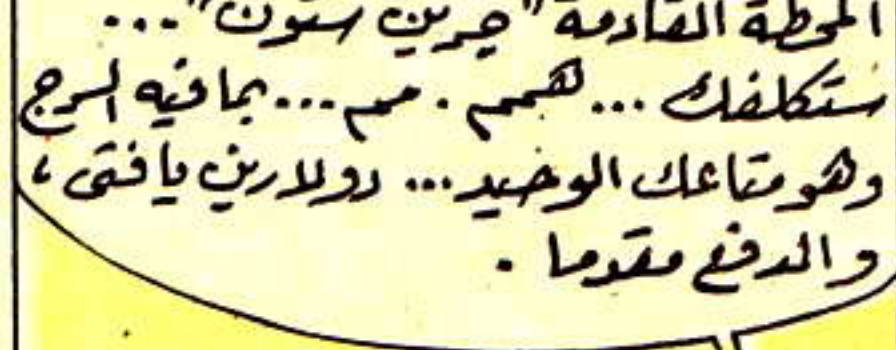 المحطة القادمة "جرين ستون"...
ستكلفك ... همم . مم ... بما فيه السرج
وهو متاعك الوحيد ... دولارين يا فتى ،
والدفع مقدما .